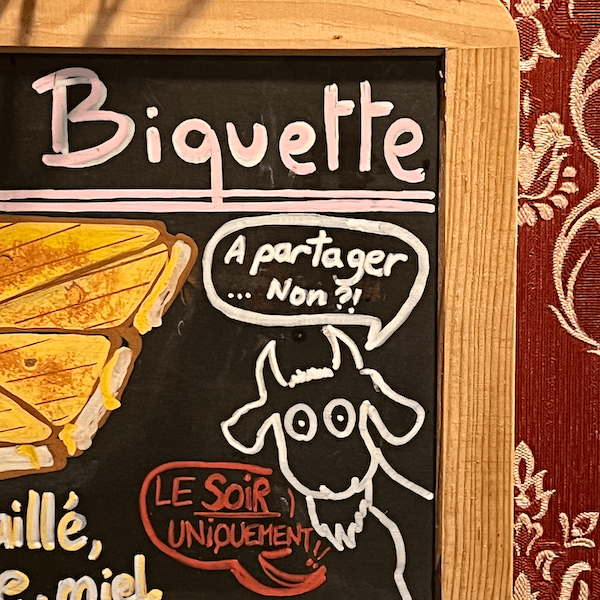 Biquette
A partager
... Non ?!
LE SOIR,
UNIQUEMENT!!
aillé,
e, miel